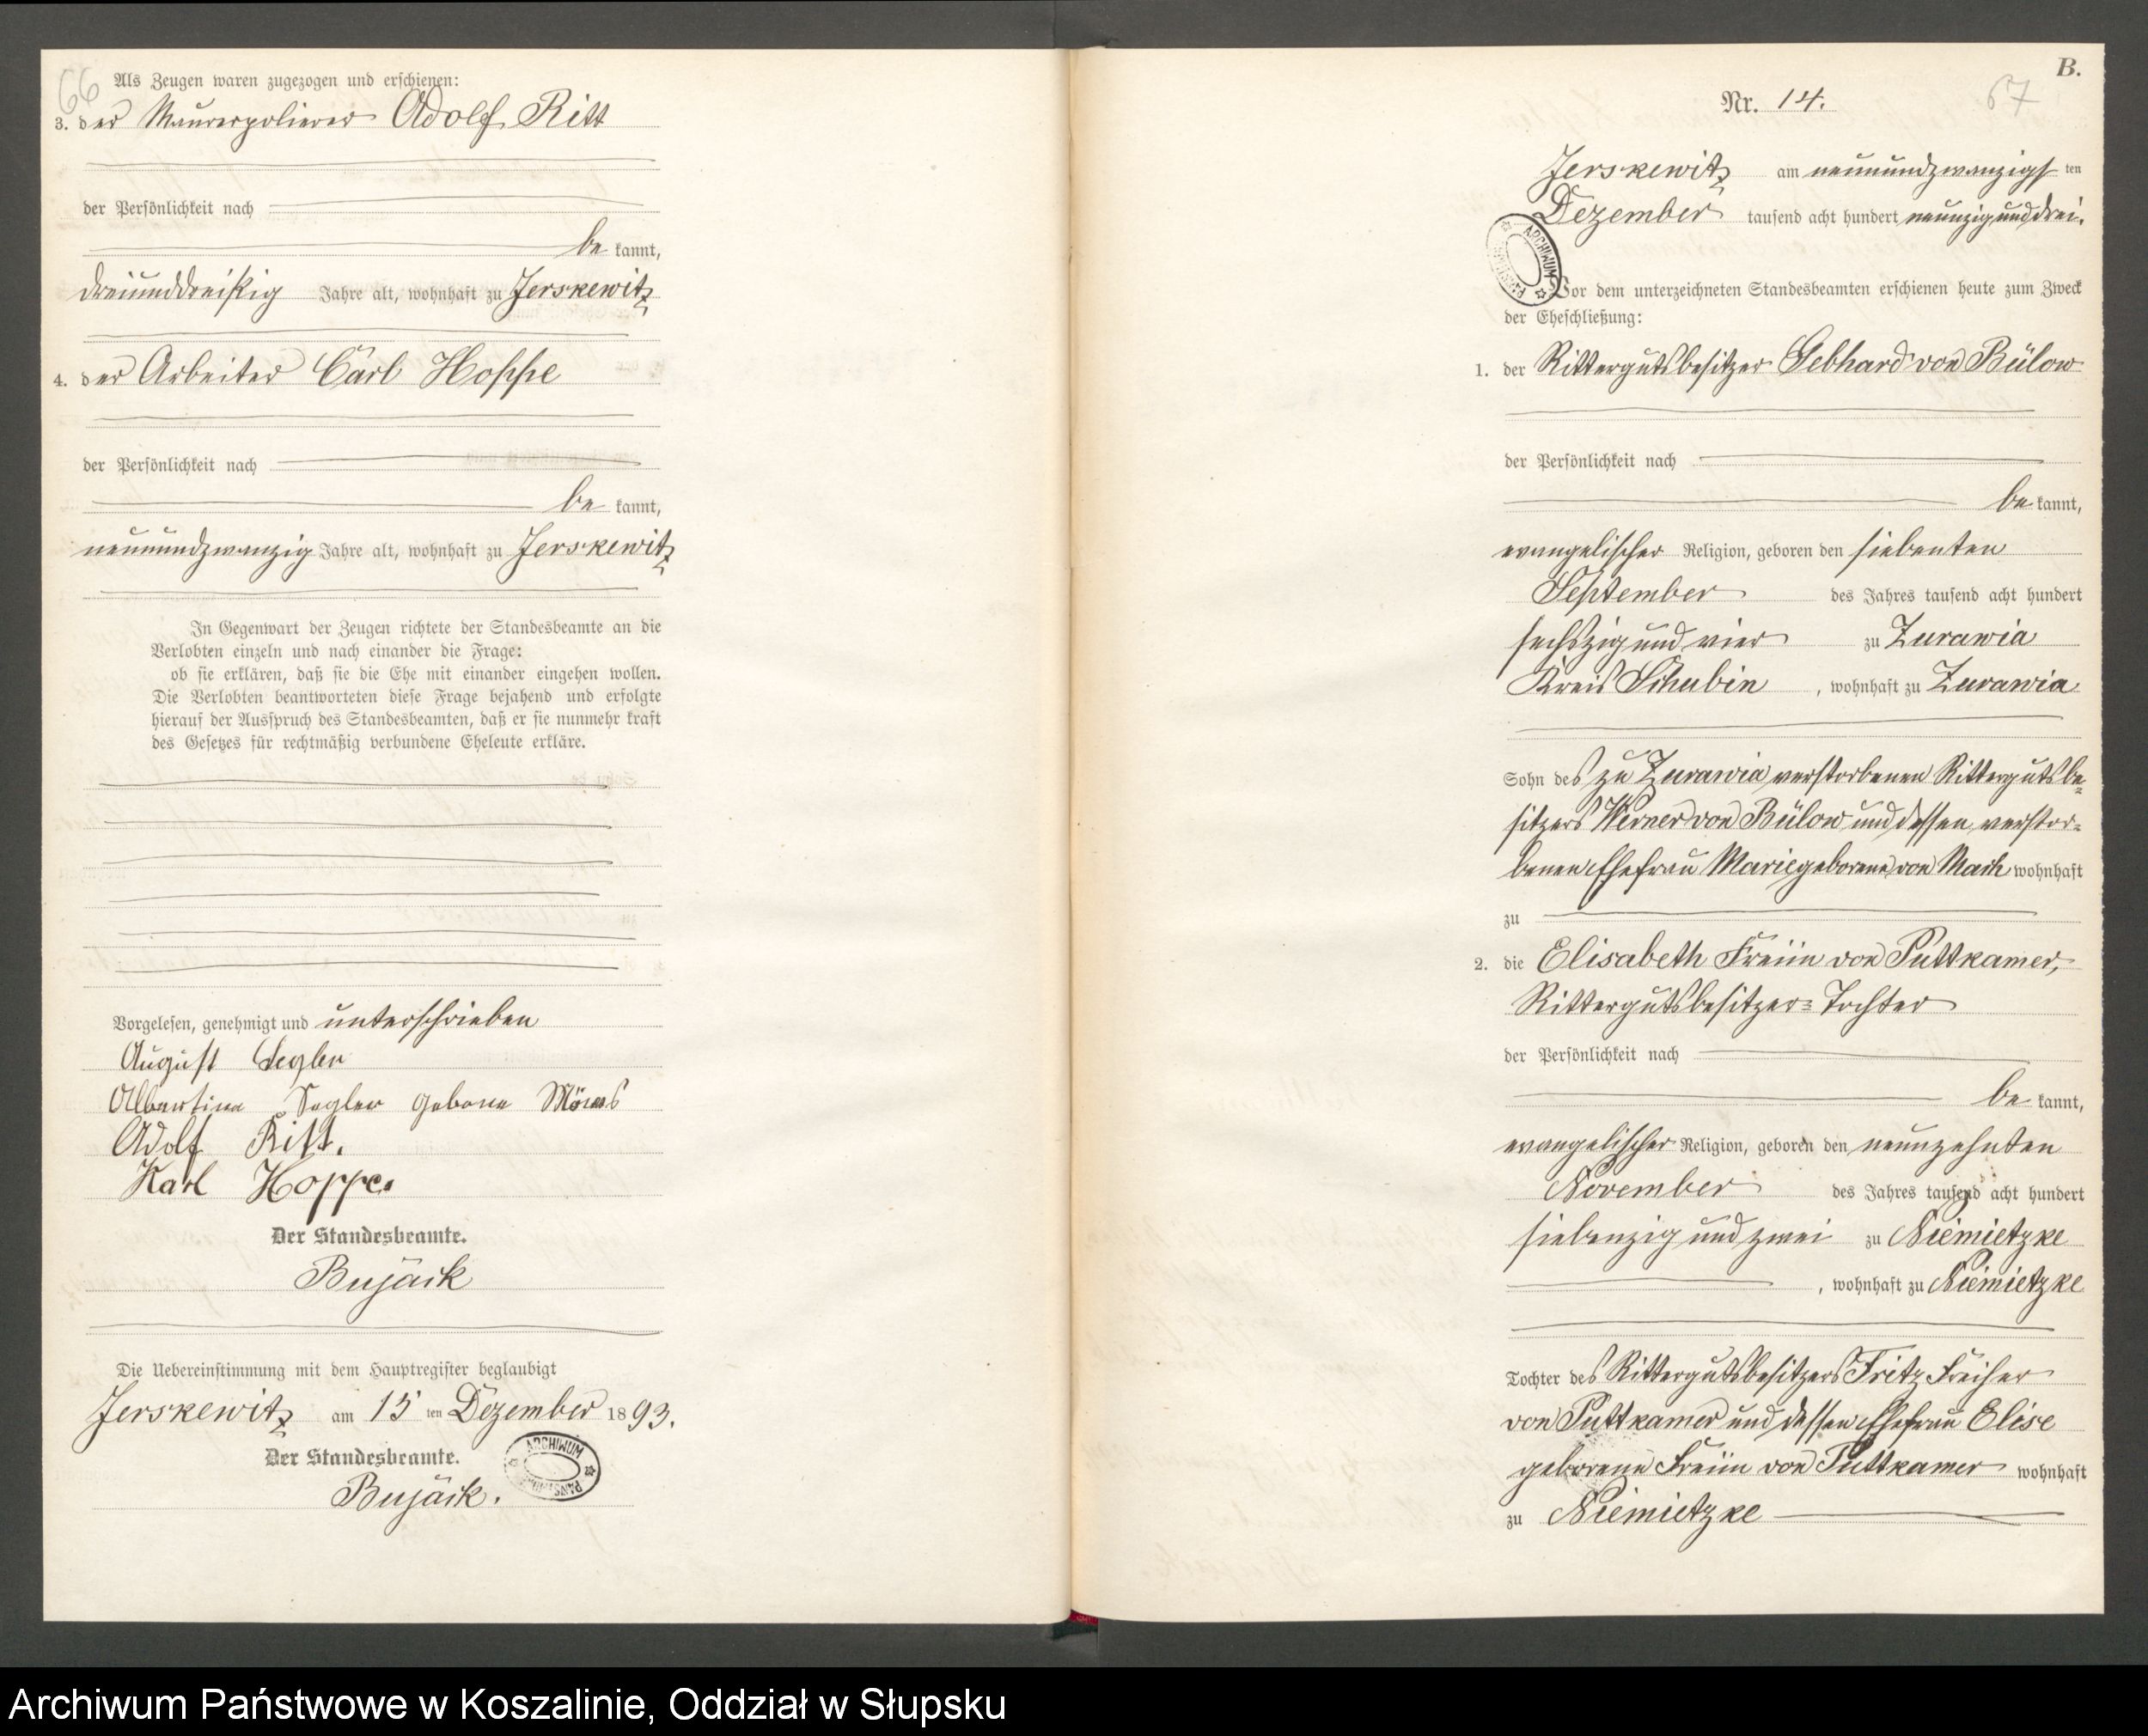 66
Als Zeugen waren zugezogen und erschienen:
3. der Maurerpolierer Adolf Ritt
der Persönlichkeit nach
be kannt,
dreiunddreißig Jahre alt, wohnhaft zu Jerskewitz
4. der Arbeiter Carl Hoppe
der Persönlichkeit nach
be kannt,
neunundzwanzig Jahre alt, wohnhaft zu Jerskewitz
In Gegenwart der Zeugen richtete der Standesbeamte an die
Verlobten einzeln und nach einander die Frage:
ob sie erklären, daß sie die Ehe mit einander eingehen wollen.
Die Verlobten beantworteten diese Frage bejahend und erfolgte
hierauf der Ausspruch des Standesbeamten, daß er sie nunmehr kraft
des Gesetzes für rechtmäßig verbundene Eheleute erkläre.
Vorgelesen, genehmigt und unterschrieben
August Segler
Albertine Segler geborne
Adolf Ritt.
Karl Hoppe.
Der Standesbeamte.
Bujack
Die Uebereinstimmung mit dem Hauptregister beglaubigt
Jerskewitz am 15 ten Dezember 18 93.
Der Standesbeamte.
Bujack.
ARCHIWUM
B.
Nr. 14.
67
Jerskewitz am neunundzwanzigst ten
Dezember tausend acht hundert neunzig und drei.
ARCHIWUM
Vor dem unterzeichneten Standesbeamten erschienen heute zum Zweck
der Eheschließung:
1. der Rittergutsbesitzer Gebhard von Bülow
der Persönlichkeit nach
be kannt,
evangelischer Religion, geboren den siebenten
September des Jahres tausend acht hundert
sechszig und vier zu Zurawia
Kreis Schubin, wohnhaft zu Zurawia
Sohn des zu Zurawia verstorbenen Rittergutsbe=
sitzers Werner von Bülow und dessen verstor=
benen Ehefrau Marie geborene von Mach wohnhaft
zu
2. die Elisabeth Freiin von Puttkamer,
Rittergutsbesitzer=Tochter
der Persönlichkeit nach
be kannt,
evangelischer Religion, geboren den neunzehnten
November des Jahres tausend acht hundert
siebenzig und zwei zu Niemietzke
, wohnhaft zu Niemietzke
Tochter des Rittergutsbesitzers Fritz Freiherr
von Puttkamer und dessen Ehefrau Elise
geborene Freiin von Puttkamer wohnhaft
zu Niemietzke
Archiwum Państwowe w Koszalinie, Oddział w Słupsku